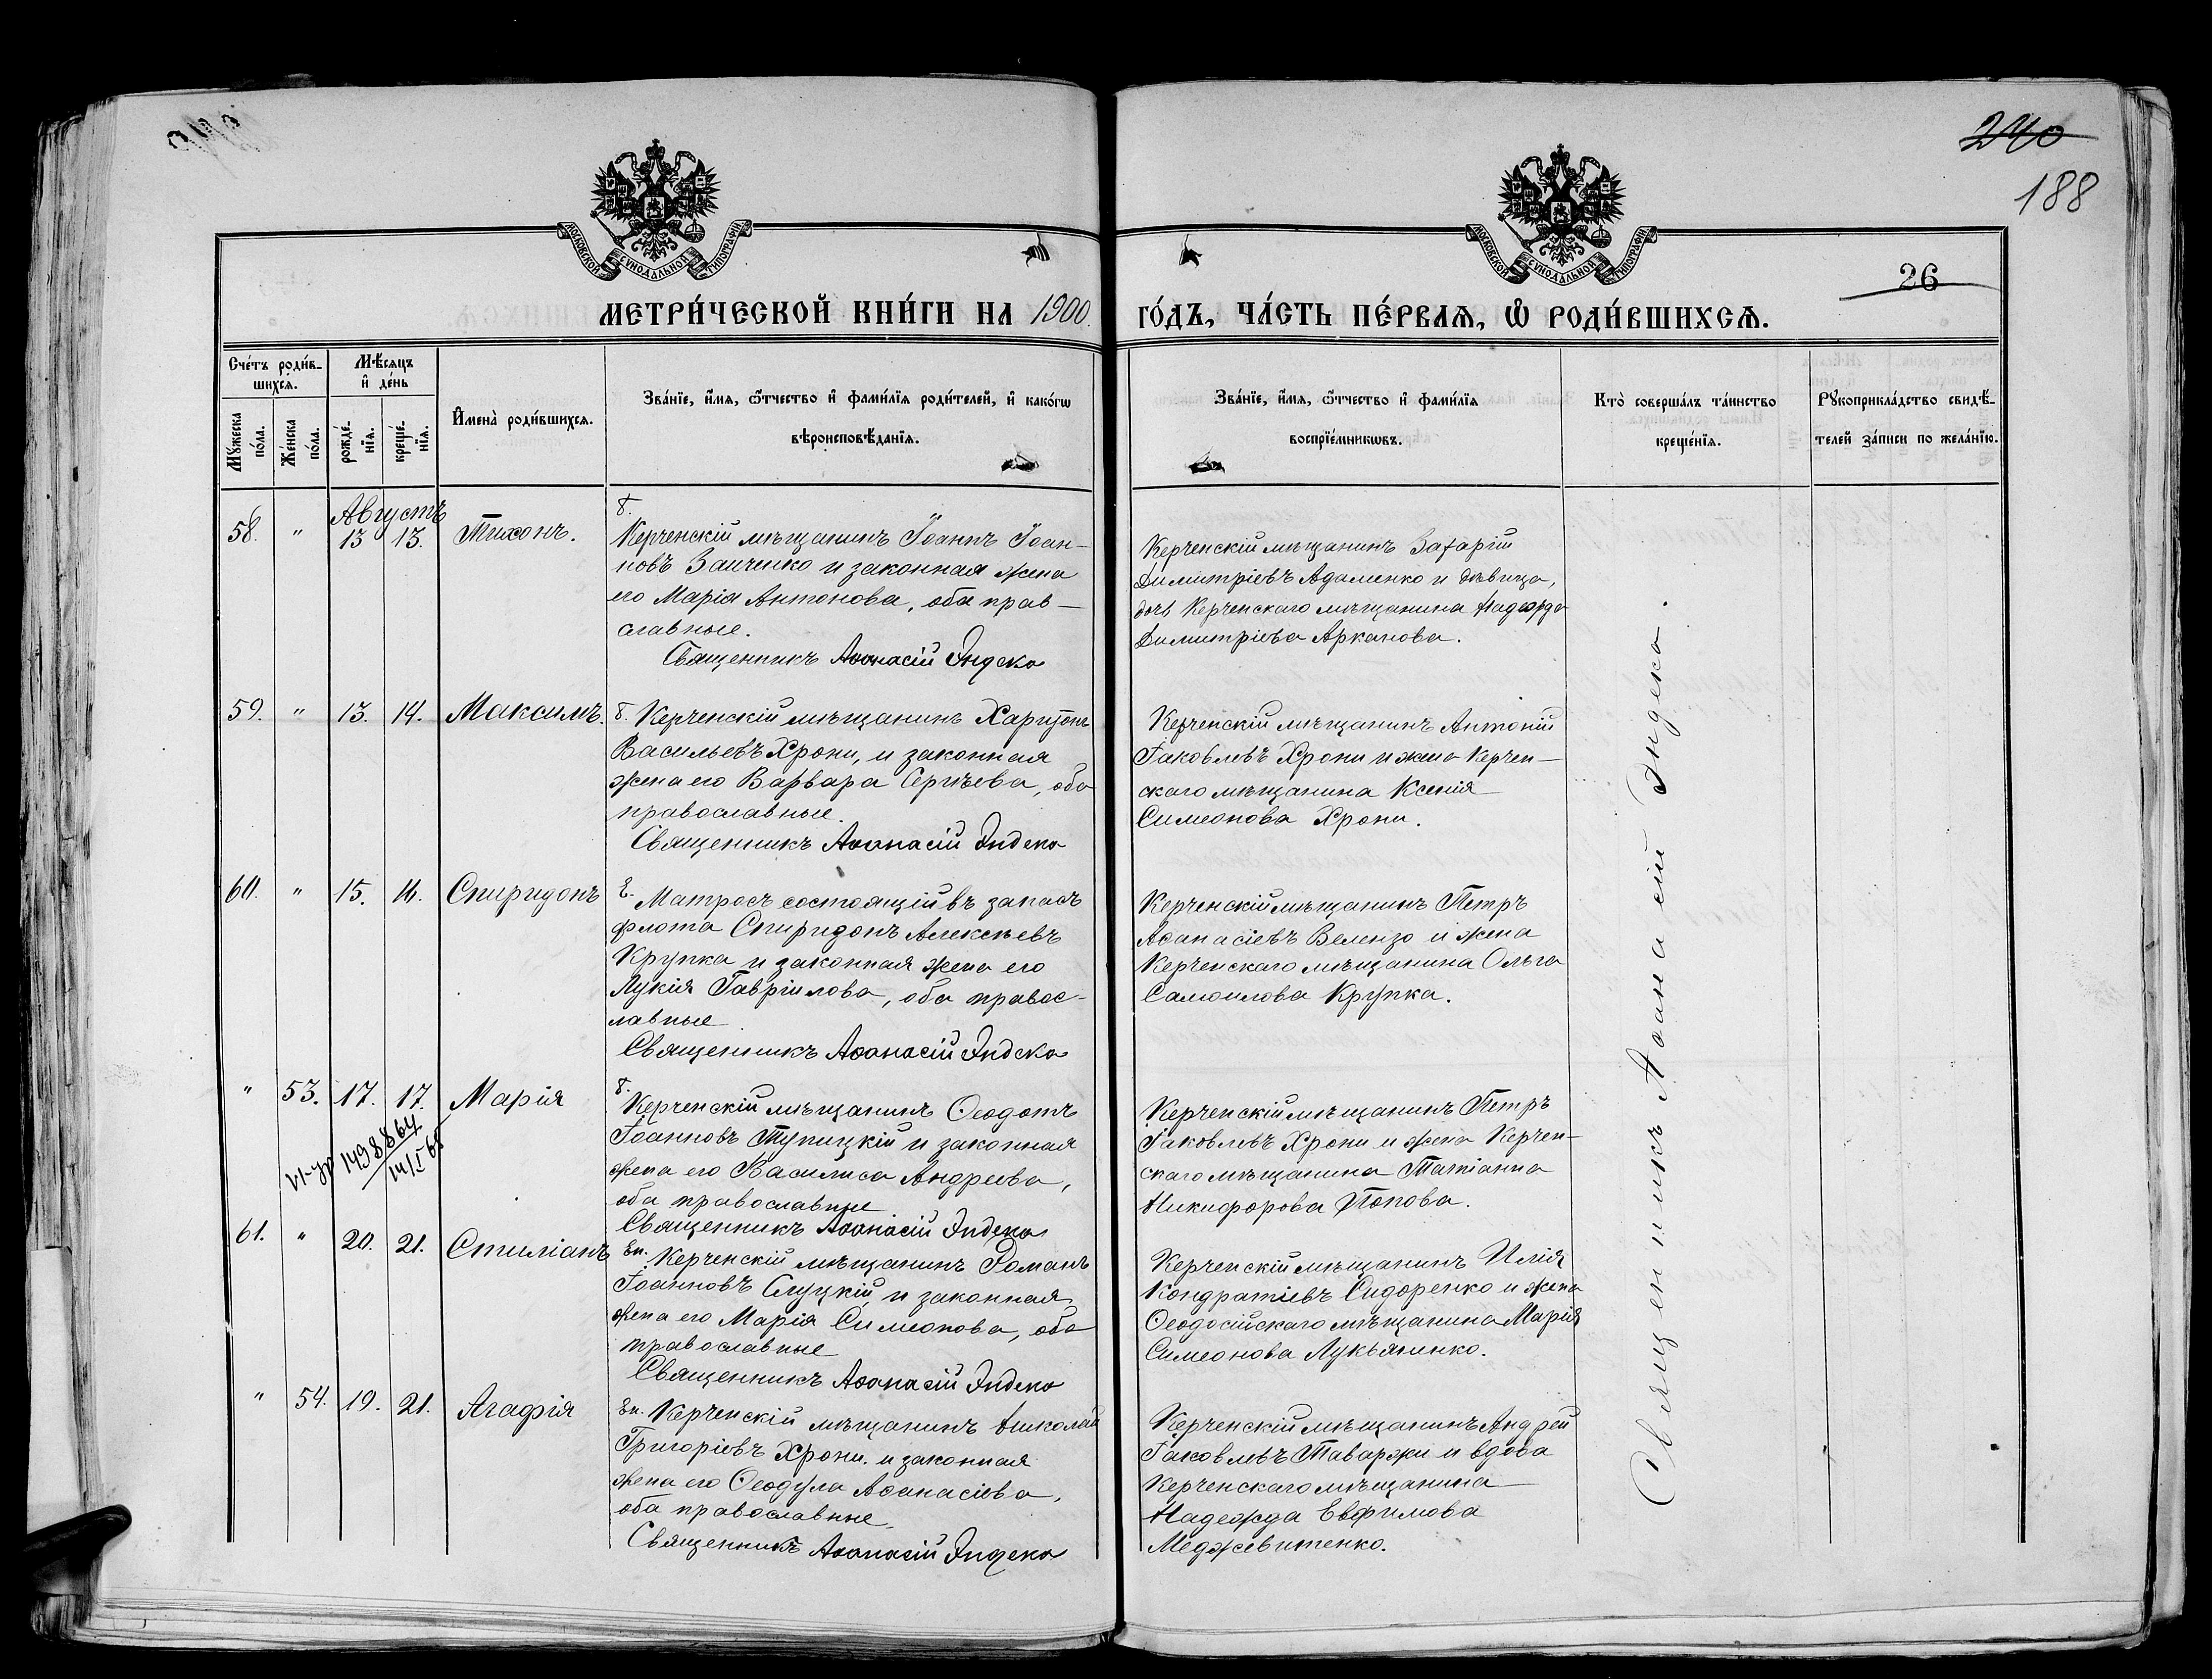 240
188
26
МОСКОВСКОЙ СѴНОДАЛЬНОЙ ТИПОГРАФІИ
МОСКОВСКОЙ СѴНОДАЛЬНОЙ ТИПОГРАФІИ
МЕТРИ́ЧЕСКОЙ КНИ́ГИ НА 1900.
ГО́ДЪ, ЧА́СТЬ ПЕ́РВАѦ, Ѽ РОДИ́ВШИХСѦ.
Сче́тъ роди́в-
шихсѧ.
Мꙋ́жеска по́ла.
Же́нска по́ла.
Мѣ́сяцъ
и҆ де́нь
рожде́-
нїя.
креще́-
нїя.
И҆мена̀ роди́вшихсѧ.
Зва́нїе, и҆́мѧ, ѻ҆́тчество и҆ фами́лїя роди́телей, и҆ како́гѡ
вѣроисповѣ́данїя.
Зва́нїе, и҆́мѧ, ѻ҆́тчество и҆ фами́лїя
воспрїе́мникѡвъ.
Кто̀ соверша́лъ та́инство
креще́нїя.
Рꙋкоприкла́дство свидѣ́-
телей за́писи по жела́нїю.
Августъ
58. " 13 13. Тихонъ.
Керченскій мѣщанинъ Іоаннъ Іоан-
новъ Заиченко и законная жена
его Марія Антонова, оба прав-
славные.
Священникъ Аѳанасій Эндека
Керченскій мѣщанинъ Захарій
Димитріевъ Адаменко и дѣвица,
дочь Керченскаго мѣщанина Надежда
Димитріева Арканова.
59. " 13. 14. Максимъ.
Керченскій мѣщанинъ Харитонъ
Васильевъ Хрони, и законная
жена его Варвара Сергѣева, оба
православные.
Священникъ Аѳанасій Эндека
Керченскій мѣщанинъ Антоній
Іаковлевъ Хрони и жена Керчен-
скаго мѣщанина Ксенія
Симеонова Хрони.
60. " 15. 16. Спиридонъ
Матросъ состоящій въ запасѣ
флота Спиридонъ Алексѣевъ
Крупка и законная жена его
Лукія Гавріилова, оба правос-
лавные
Священникъ Аѳанасій Эндека
Керченскій мѣщанинъ Петръ
Аѳанасіевъ Велензо и жена
Керченскаго мѣщанина Ольга
Самоилова Крупка.
" 53. 17. 17. Марія
Керченскій мѣщанинъ Ѳеодотъ
Іоанновъ Тупицкій и законная
жена его Василиса Андреева,
оба православные
Священникъ Аѳанасій Эндека
Керченскій мѣщанинъ Петръ
Іаковлевъ Хрони и жена Керчен-
скаго мѣщанина Татіанна
Никифорова Попова.
1498864
14/I 68
61. " 20. 21. Стиліанъ
Керченскій мѣщанинъ Романъ
Іоанновъ Слуцкій и законная
жена его Марія Симеонова, оба
православные
Священникъ Аѳанасій Эндека
Керченскій мѣщанинъ Илія
Кондратіевъ Сидоренко и жена
Ѳеодосійскаго мѣщанина Марія
Симеонова Лукьяненко.
" 54. 19. 21. Агафія
Керченскій мѣщанинъ Николай
Григоріевъ Хрони и законная
жена его Ѳеодула Аѳанасіева,
оба православные
Священникъ Аѳанасій Эндека
Керченскій мѣщанинъ Андрей
Іаковлевъ Таваржи и вдова
Керченскаго мѣщанина
Надежда Евфимова
Меджевитенко.
Священникъ Аѳанасій Эндека.